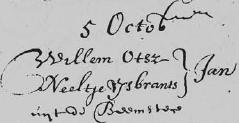 5 Octob
Willem Otsz } Jan
Neeltje Ysbrants
uut de Beemster